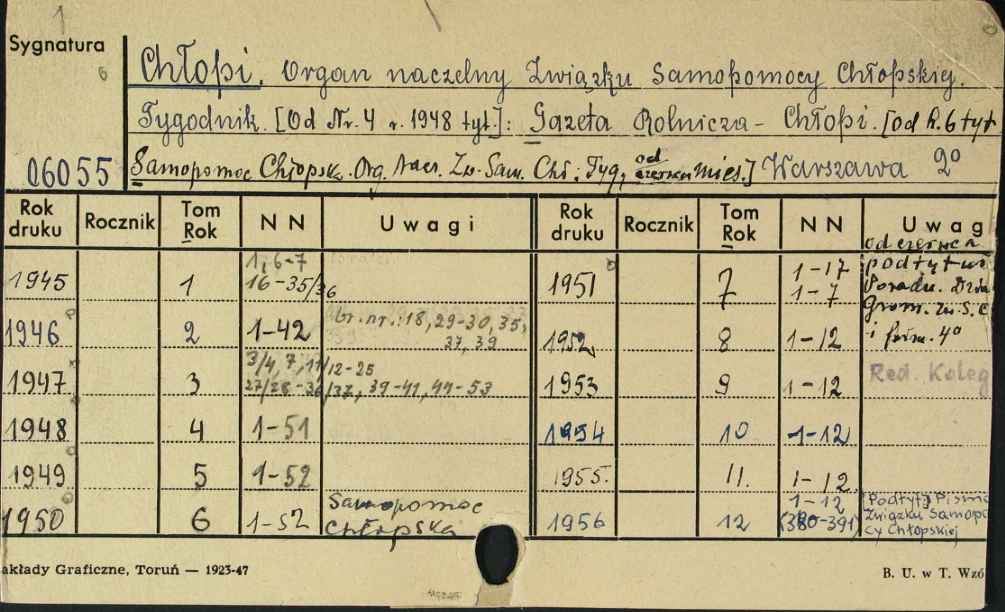 1
Sygnatura
6
Chłopi. Organ naczelny Związku Samopomocy Chłopskiej.
Tygodnik. [Od Nr. 4 r. 1948 tyt.]: Gazeta Rolnicza - Chłopi. [od R. 6 tyt
06055 Samopomoc Chłopsk. Org. Nacz. Zw. Sam. Chł. Tyg, od czerwca mies.] Warszawa 2º
Rok druku Rocznik Tom Rok NN Uwagi Rok druku Rocznik Tom Rok NN Uwag
1945 1 1, 6-7
16-35/36
1946 2 1-42 br. nr.: 18, 29-30, 35,
37, 39
1947 3 3/4, 7, 11/12-25
27/28-36/37, 39-41, 44-53
1948 4 1-51
1949 5 1-52
1950 6 1-52 Samopomoc
Chłopska
1951 7 1-17
1-7
od czerwca
podtytuł
Grom. Zw. S. C
i form. 4º
1952 8 1-12
1953 9 1-12 Red. Koleg
1954 10 1-12
1955. 11. 1-12
1956 12 1-12
(380-391)
[Podtyt.] Pismo
Związku Samopo
cy Chłopskiej
akłady Graficzne, Toruń — 1923-47
B. U. w T. Wzó